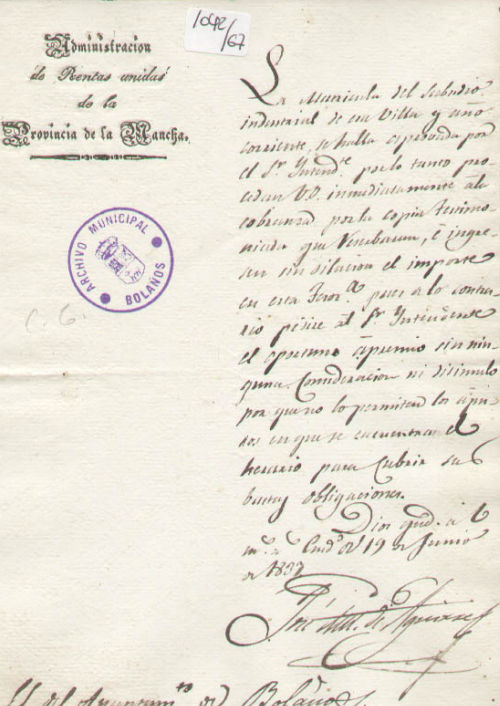 1042/67
Administracion
de Rentas unidas
de la
Provincia de la Mancha.
ARCHIVO MUNICIPAL
BOLAÑOS
C. 6.
La Matricula del Subsidio
industrial de esa Villa y año
corriente, se halla aprobada por
el Sr. Intend.te por lo tanto pro
cedan VV. inmediatamente á la
cobranza por la copia testimo
niada que recibieron, é ingre
sen sin dilacion el importe
en esta Tesor.a pues a lo contra
rio pediré al Sr. Intendente
el oportuno apremio sin nin
guna Consideracion ni disimulo
por que no lo permiten los apu
ros en que se encuentra el
herario para Cubrir sus
bastas obligaciones.
Dios gud. á V
m.s a.s Ciud.d R.l 19 de Junio
de 1837
José de Aguirre
del Ayuntam.to de Bolaños